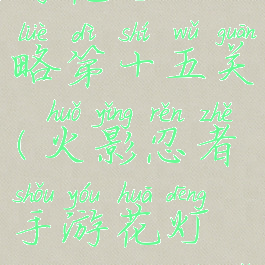 lüè dì shí wǔ guān
略第十五关
huǒ yǐng rěn zhě
(火影忍者
shǒu yóu huā dēng
手游花灯